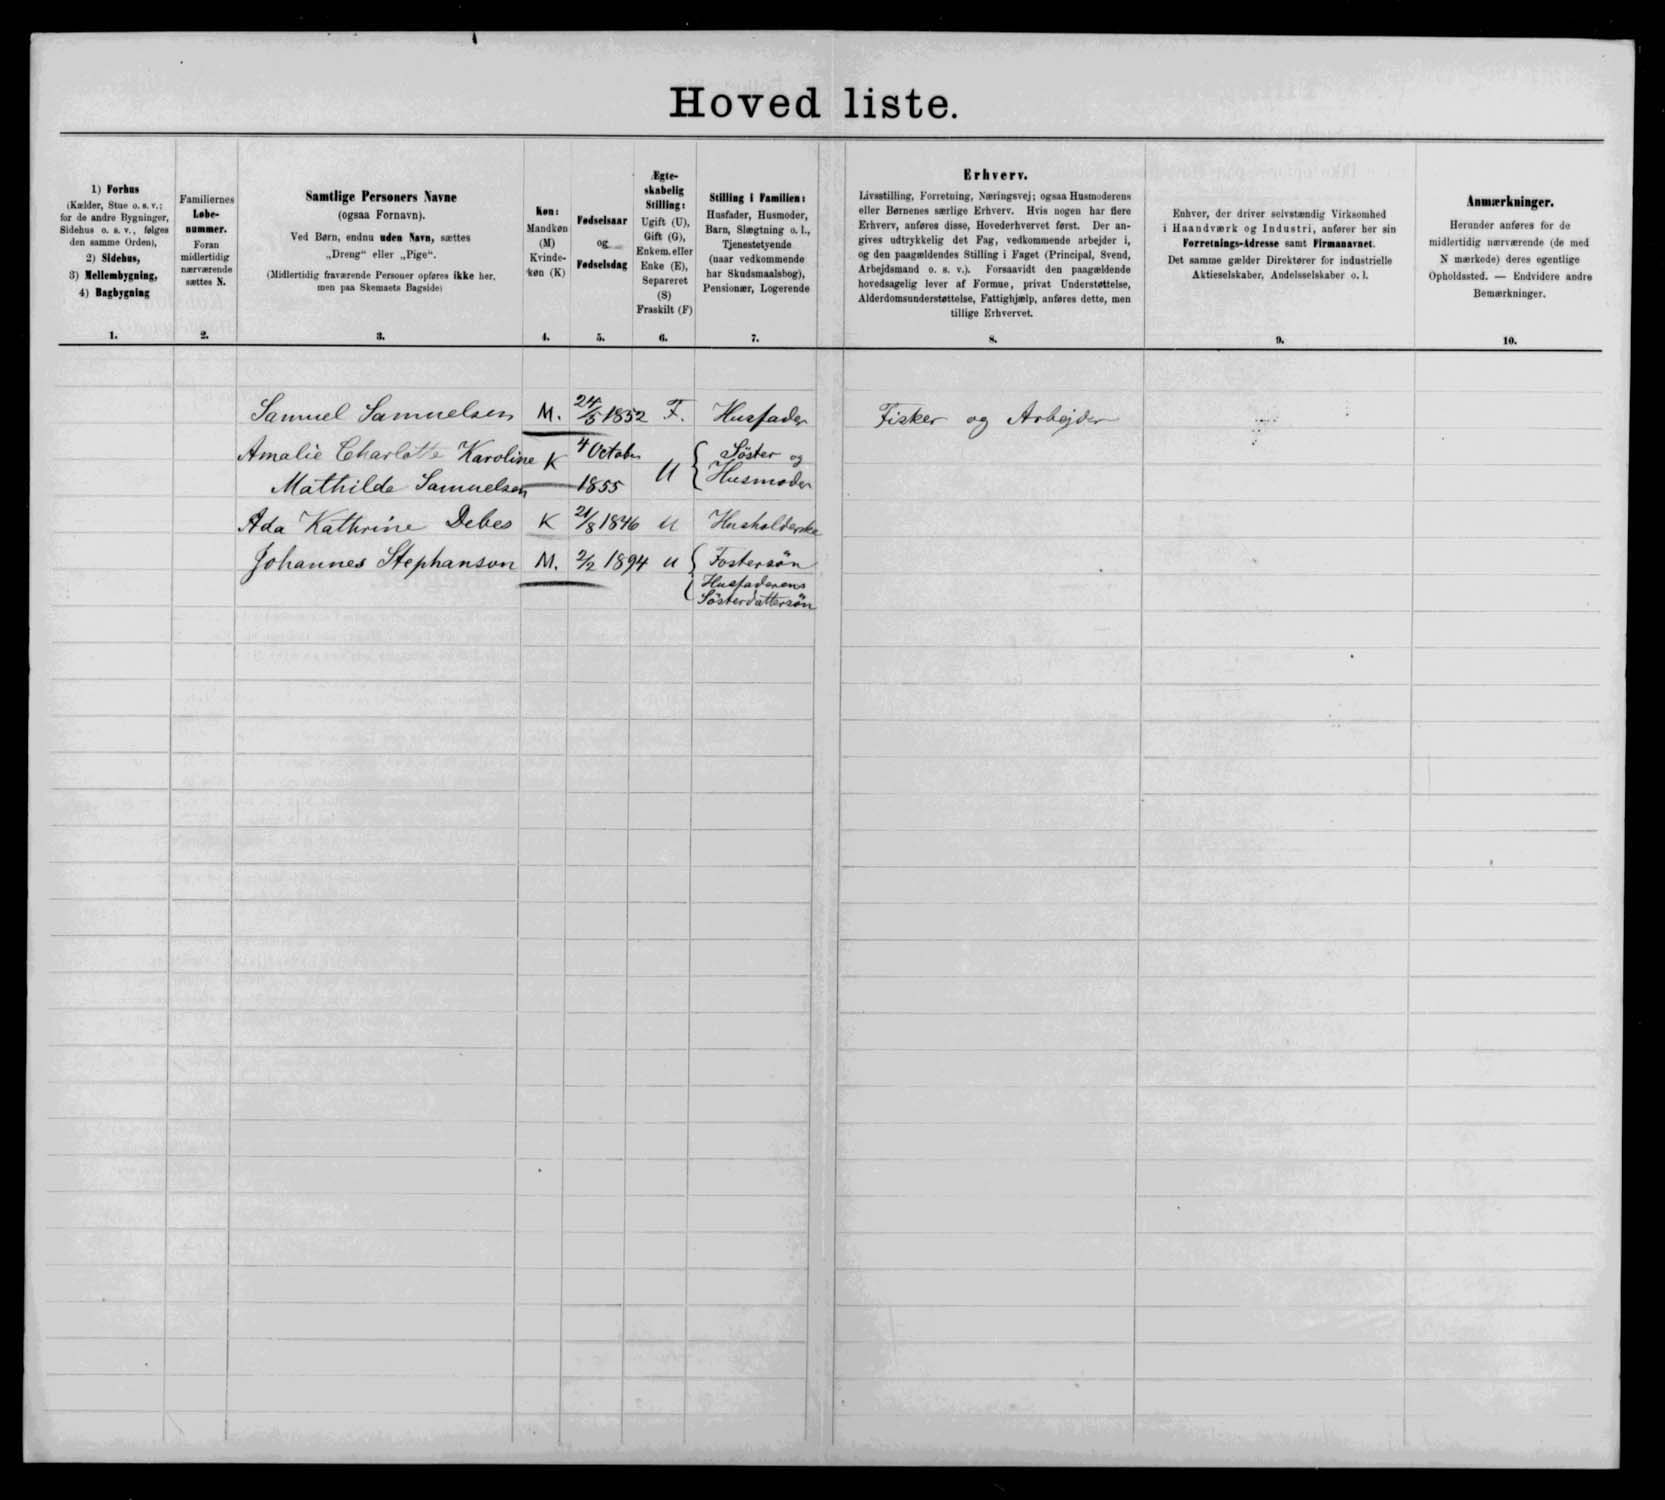 Hoved liste.
1) Forhus
(Kælder, Stue o. s. v.;
for de andre Bygninger,
Sidehus o. s. v., følges
den samme Orden),
2) Sidehus,
3) Mellembygning,
4) Bagbygning
1.
Familiernes
Løbe-
nummer.
Foran
midlertidig
nærværende
sættes N.
2.
Samtlige Personers Navne
(ogsaa Fornavn).
Ved Børn, endnu uden Navn, sættes
„Dreng“ eller „Pige“.
(Midlertidig fraværende Personer opføres ikke her,
men paa Skemaets Bagside)
3.
Køn:
Mandkøn
(M)
Kvinde-
køn (K)
4.
Fødselsaar
og
Fødselsdag
5.
Ægte-
skabelig
Stilling:
Ugift (U),
Gift (G),
Enkem. eller
Enke (E),
Separeret
(S)
Fraskilt (F)
6.
Stilling i Familien:
Husfader, Husmoder,
Barn, Slægtning o. l.,
Tjenestetyende
(naar vedkommende
har Skudsmaalsbog),
Pensionær, Logerende
7.
Erhverv.
Livsstilling, Forretning, Næringsvej; ogsaa Husmoderens
eller Børnenes særlige Erhverv. Hvis nogen har flere
Erhverv, anføres disse, Hovederhvervet først. Der an-
gives udtrykkelig det Fag, vedkommende arbejder i,
og den paagældendes Stilling i Faget (Principal, Svend,
Arbejdsmand o. s. v.). Forsaavidt den paagældende
hovedsagelig lever af Formue, privat Understøttelse,
Alderdomsunderstøttelse, Fattighjælp, anføres dette, men
tillige Erhvervet.
8.
Enhver, der driver selvstændig Virksomhed
i Haandværk og Industri, anfører her sin
Forretnings-Adresse samt Firmanavnet.
Det samme gælder Direktører for industrielle
Aktieselskaber, Andelsselskaber o. l.
9.
Anmærkninger.
Herunder anføres for de
midlertidig nærværende (de med
N mærkede) deres egentlige
Opholdssted. — Endvidere andre
Bemærkninger.
10.
Samuel Samuelsen M. 24/5 1852 F. Husfader Fisker og Arbejder
Amalie Charlotte Karoline K 4 October U { Søster og
Mathilde Samuelsen 1855 Husmoder
Ada Kathrine Debes K 21/8 1846 U Husholderske
Johannes Stephanson M. 2/2 1894 U { Fostersøn
{ Husfaderens
Søsterdattersøn